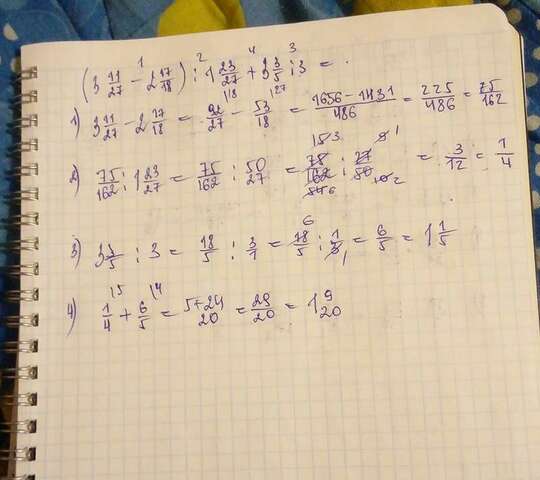 (3 11/27 - 2 17/18) : 1 23/27 + 3 3/5 : 3 =
1) 3 11/27 - 2 17/18 = 92/27 - 53/18 = 1656-1431/486 = 225/486 = 75/162
2) 75/162 : 1 23/27 = 75/162 : 50/27 = 75/162 : 27/50 = 3/12 = 1/4
3) 3 3/5 : 3 = 18/5 : 3/1 = 18/5 : 1/3 = 6/5 = 1 1/5
4) 1/4 + 6/5 = 5+24/20 = 29/20 = 1 9/20